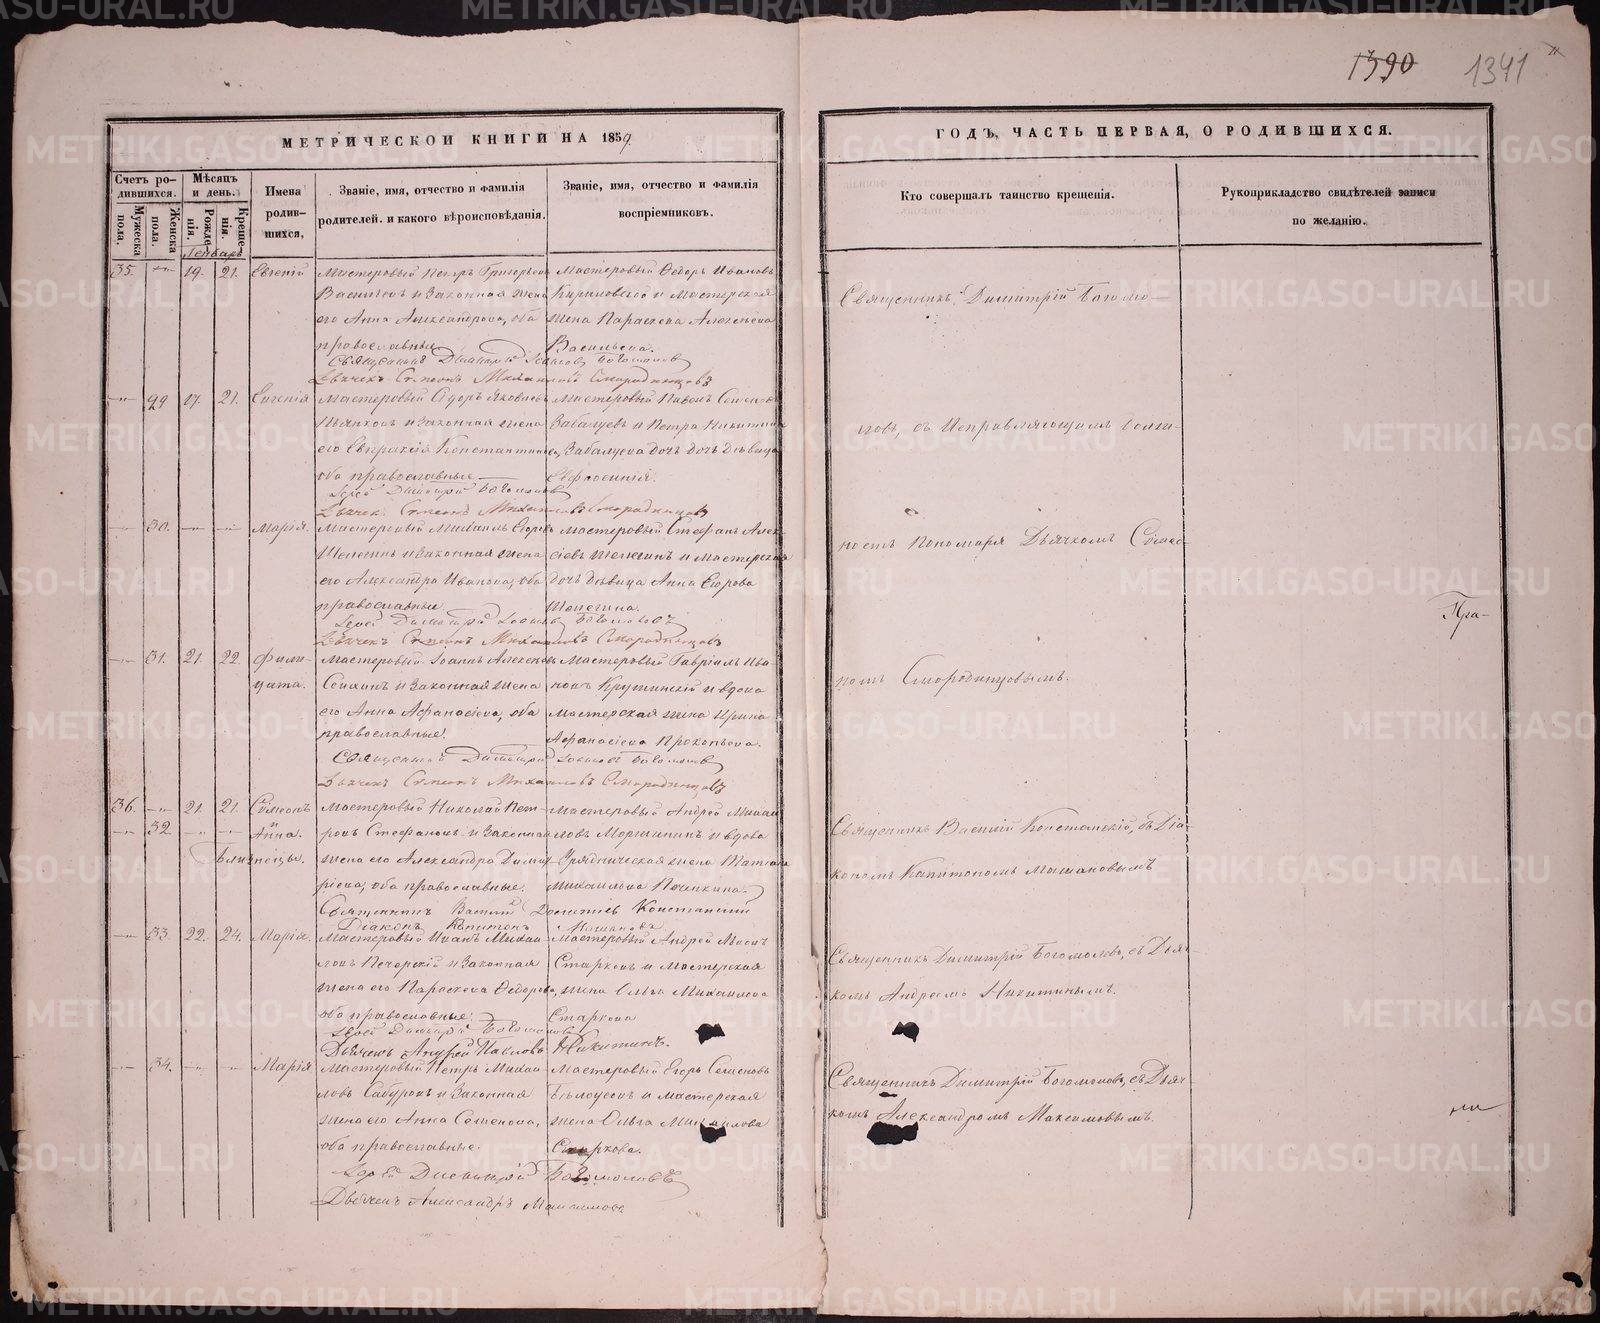 1390 1341
МЕТРИЧЕСКОЙ КНИГИ НА 1859
ГОДЪ, ЧАСТЬ ПЕРВАЯ, О РОДИВШИХСЯ.
Счетъ ро-
дившихся.
Мужеска
пола.
Женска
пола.
Мѣсяцъ
и день.
Рожде-
нія.
Креще-
нія.
Имена
родив-
шихся,
Званіе, имя, отчество и фамилія
родителей. и какого вѣроисповѣданія.
Званіе, имя, отчество и фамилія
воспріемниковъ.
Кто совершалъ таинство крещенія.
Рукоприкладство свидѣтелей записи
по желанію.
Генварь
35. 19. 21. Евгеній
Мастеровый Петръ Григорьевъ
Васильевъ и законная жена
его Анна Александрова, оба
православные
Мастеровый Ѳедоръ Ивановъ
и Мастерская
жена Параскева Алексѣева
Васильева.
Священникъ Димитрій Іоанновъ Богомоловъ
Дьячекъ Симеонъ Михаиловъ Смородинцовъ
29 17. 21. Евгенія
Мастеровый Ѳедоръ Яковлевъ
Пьянковъ и законная жена
его Евпраксія Константинова,
оба православные
Мастеровый Павелъ Семеновъ
Забалуевъ и Петра Никитина
Забалуева дочь дочь дѣвица
Евфросинія.
Іерей Димитрій Богомоловъ
Дьячекъ Симеонъ Михаиловъ Смородинцовъ
30. Марія.
Мастеровый Михаилъ Егоровъ
Шелегинъ и законная жена
его Александра Иванова, оба
православные
Мастеровый Стефанъ Алек-
сіевъ Шелегинъ и мастерская
дочь дѣвица Анна Егорова
Шелегина.
Іерей Димитрій Іоанновъ Богомоловъ
Дьячекъ Симеонъ Михаиловъ Смородинцовъ
31. 21. 22. Фили-
цата.
Мастеровый Іоаннъ Алексѣевъ
и законная жена
его Анна Афанасіева, оба
православные.
Мастеровый Гавріилъ Ива-
новъ Крутинскій и вдова
мастерская жена Ирина
Афанасіева Прокопьева.
Священникъ Димитрій Іоанновъ Богомоловъ
Дьячекъ Симеонъ Михаиловъ Смородинцовъ
36. 21. 21. Симеонъ
32 и Анна.
Близнецы.
Мастеровый Николай Пет-
ровъ Стефановъ и законная
жена его Александра Димит-
ріева, оба православные.
Мастеровый Андрей Михаи-
ловъ Моршининъ и вдова
Урядническая жена Татіана
Михаилова Почепкина.
Священникъ Василій Константскій
Діаконъ Капитонъ Машановъ
33. 22. 24. Марія.
Мастеровый Иванъ Михаи-
ловъ Печорскій и законная
жена его Параскева Ѳедорова,
оба православные.
Мастеровый Андрей
Старковъ и Мастерская
жена Ольга Михаилова
Старкова
Іерей Димитрій Богомоловъ
Дьячекъ Андрей Павловъ Никитинъ.
34. Марія
Мастеровый Петръ Михаи-
ловъ Сабуровъ и законная
жена его Анна Семенова,
оба православные.
Мастеровый Егоръ Семеновъ
Бѣлоусовъ и мастерская
жена Ольга Михаилова
Старкова.
Іерей Димитрій Богомоловъ
Дьячекъ Александръ Максимовъ
Священникъ Димитрій Богомо-
ловъ, съ Исправляющимъ долж-
ность Пономаря Дьячкомъ Симео-
номъ Смородинцовымъ.
Священникъ Василій Константскій, съ Діа-
кономъ Капитономъ Машановымъ
Священникъ Димитрій Богомоловъ, съ Дьяч-
комъ Андреемъ Никитинымъ.
Священникъ Димитрій Богомоловъ, съ Дьяч-
комъ Александромъ Максимовымъ.
Пра-
METRIKI.GASO-URAL.RU